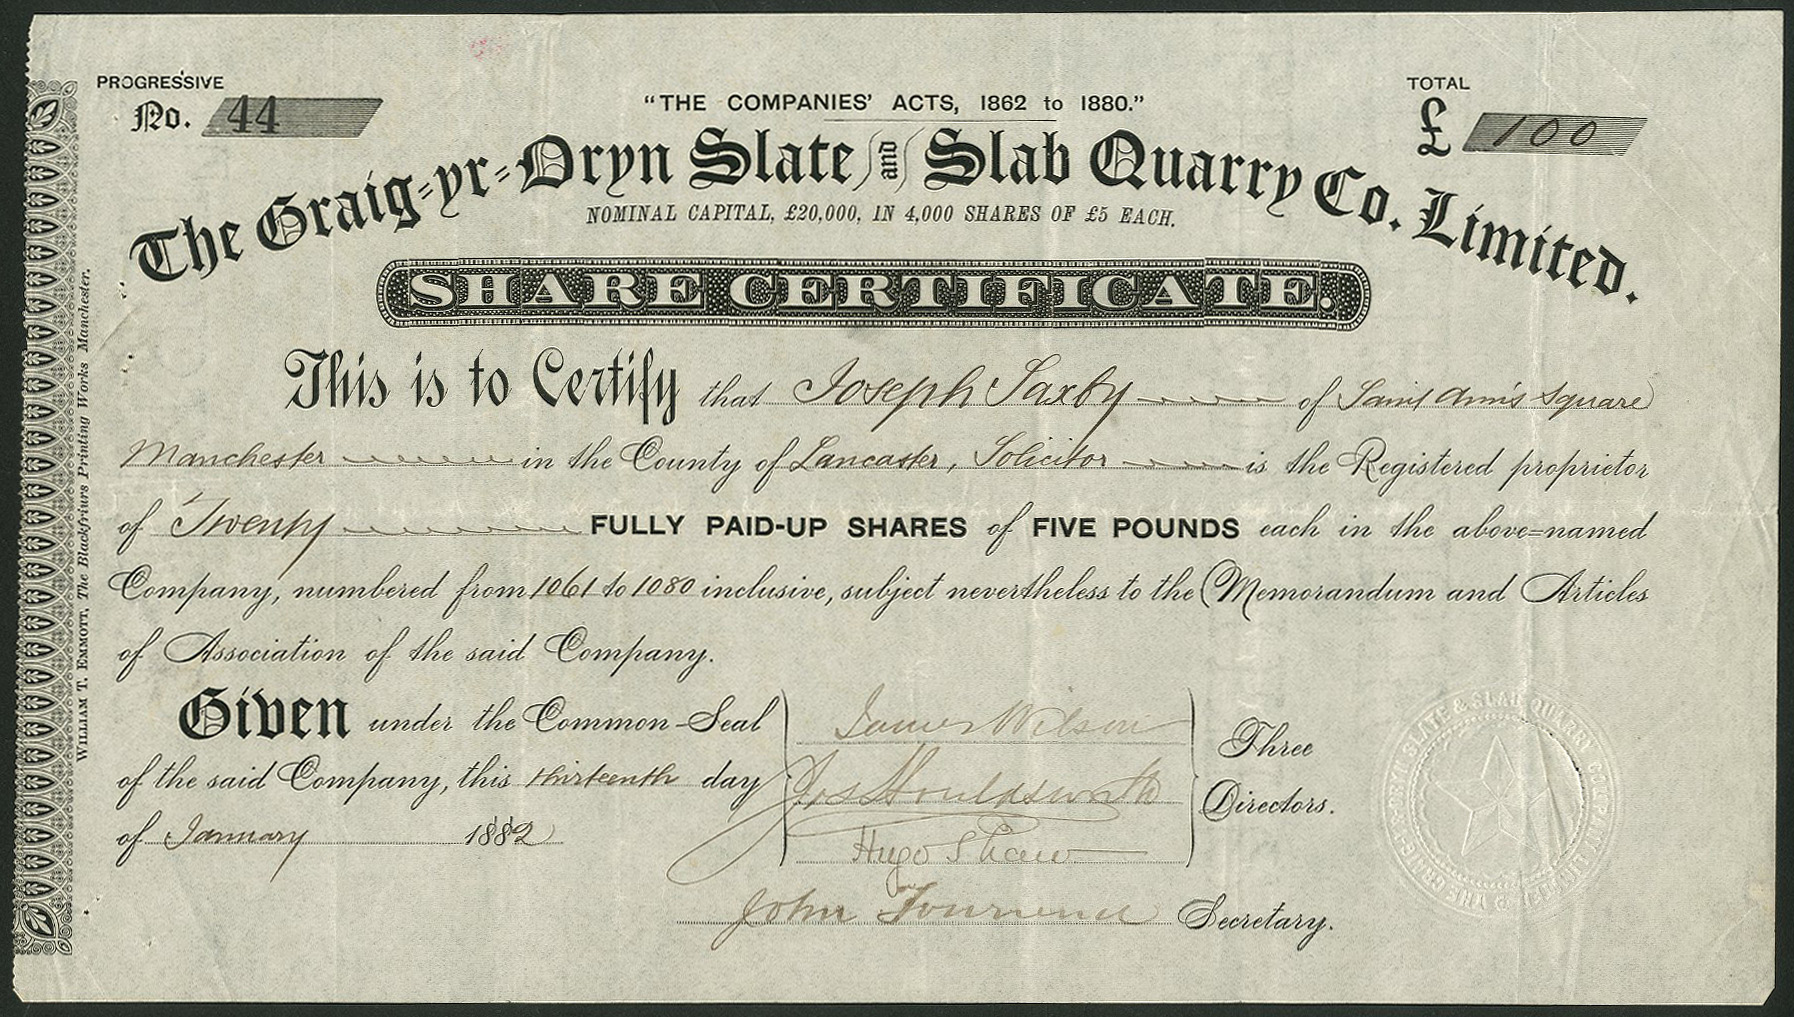 PROGRESSIVE
No. 44
"THE COMPANIES' ACTS, 1862 to 1880."
TOTAL
£ 100
The Graig-yr-Dryn Slate and Slab Quarry Co. Limited.
NOMINAL CAPITAL, £20,000, IN 4,000 SHARES OF £5 EACH.
SHARE CERTIFICATE.
This is to Certify that Joseph Saxby of Saint Ann's Square
Manchester in the County of Lancaster, Solicitor is the Registered proprietor
of Twenty FULLY PAID-UP SHARES of FIVE POUNDS each in the above=named
Company, numbered from 1061 to 1080 inclusive, subject nevertheless to the Memorandum and Articles
of Association of the said Company.
Given under the Common-Seal
of the said Company, this thirteenth day
of January 1882
James Wilson
Jos Houldsworth
Hugo Shaw
Three
Directors.
John Townsend Secretary.
WILLIAM T. EMMOTT, The Blackfriars Printing Works Manchester.
THE GRAIG-YR-DRYN SLATE & SLAB QUARRY COMPANY LIMITED